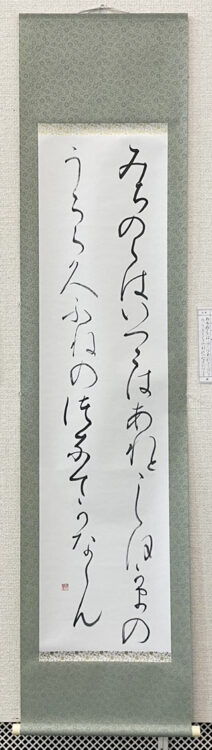 みちのくはいつくはあれとしほかまの
うらこ久ふねの徒奈てかなしも